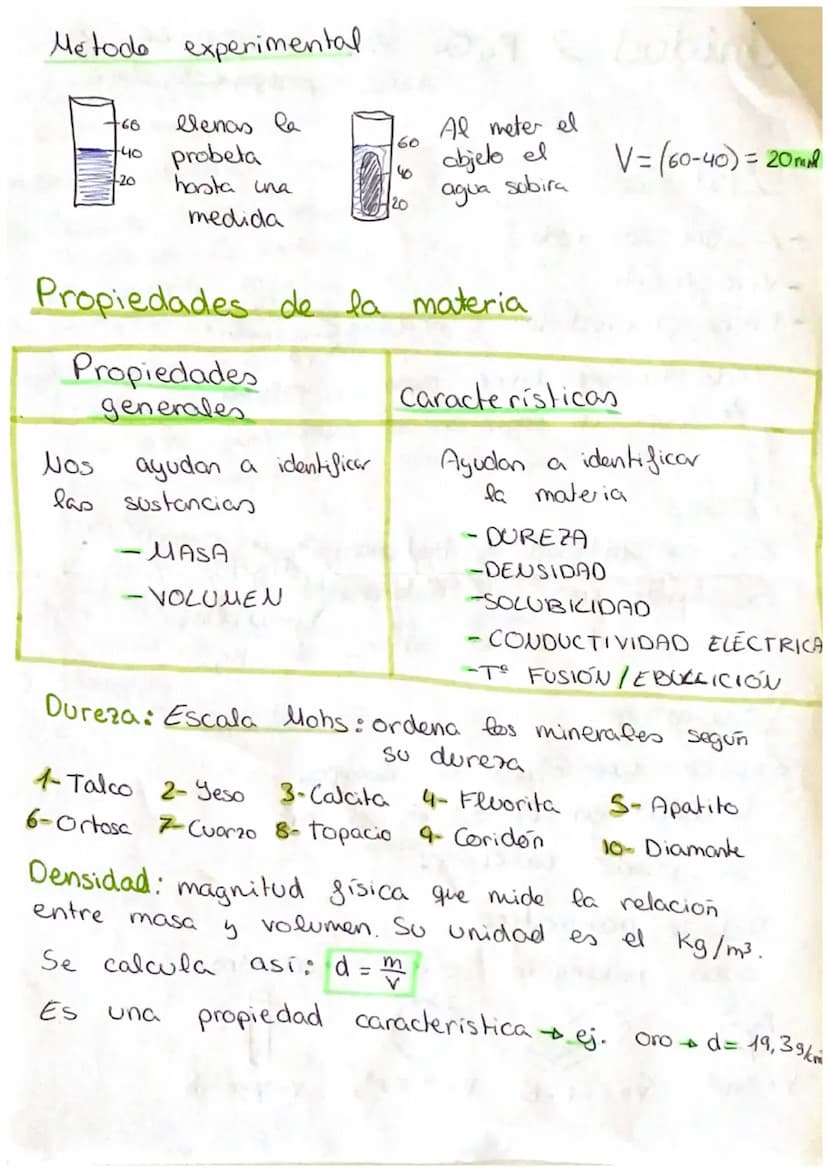 Método experimental
60
40
20
llenas la
probeta
hasta una
medida
60
40
20
Al meter el
objeto el
agua subira
V = (60-40) = 20 ml
Propiedades de la materia
Propiedades
generales
Nos ayudan a identificar
las sustancias
- MASA
- VOLUMEN
características
Ayudan a identificar
la materia
- DUREZA
- DENSIDAD
- SOLUBILIDAD
- CONDUCTIVIDAD ELÉCTRICA
- Tª FUSIÓN / EBULLICIÓN
Dureza: Escala Mohs: ordena los minerales según
su dureza
1- Talco 2- Yeso 3- Calcita 4- Fluorita 5- Apatito
6- Ortosa 7- Cuarzo 8- topacio 9- Coridón 10- Diamante
Densidad: magnitud física que mide la relación
entre masa y volumen. Su unidad es el Kg/m³.
Se calcula así: d = m/v
Es una propiedad característica → ej. oro → d= 19,3 g/cm